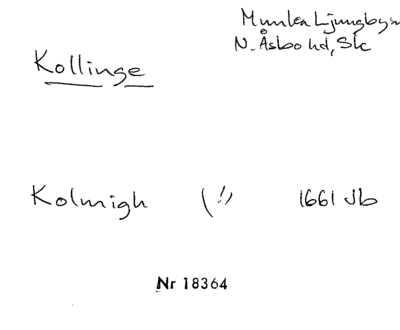 Munka Ljungbysn
N. Åsbo hd, Sk
Kollinge
Kolmigh (!) 1661 Jb
Nr 18364